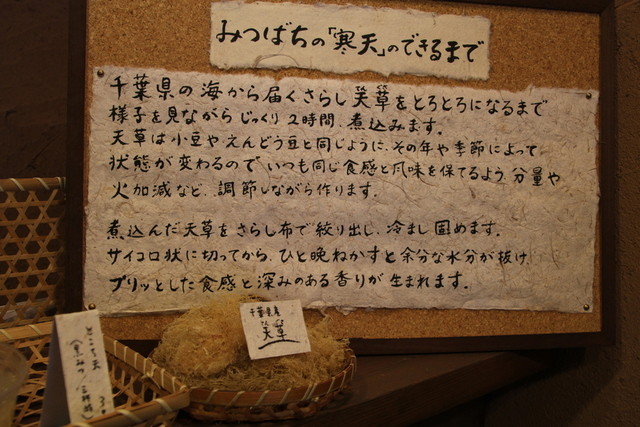 みつばちの「寒天」のできるまで
千葉県の海から届くさらし天草をとろとろになるまで
様子を見ながらじっくり2時間、煮込みます。
天草は小豆やえんどう豆と同じように、その年や季節によって
状態が変わるので いつも同じ食感と風味を保てるよう 分量や
火加減など、調節しながら作ります。
煮込んだ天草をさらし布で絞り出し、冷まし固めます。
サイコロ状に切ってから、ひと晩ねかすと余分な水分が抜け、
プリッとした食感と深みのある香りが生まれます。
千葉県産
天草
ところ天
(黒みつ 三杯酢)